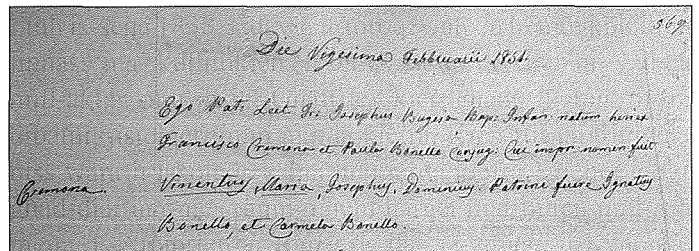 569
Die Vigesima Februarii 1851.
Ego Pat: Lect Fr: Josephus Bugeja Bap: Infan: natum heri ex
Francisco Cremona et Paula Bonello Conjug: Cui impr: nomen fuit
Cremona. Vincentius, Maria, Josephus, Dominicus. Patrini fuere Ignatius
Bonello, et Carmela Bonello.